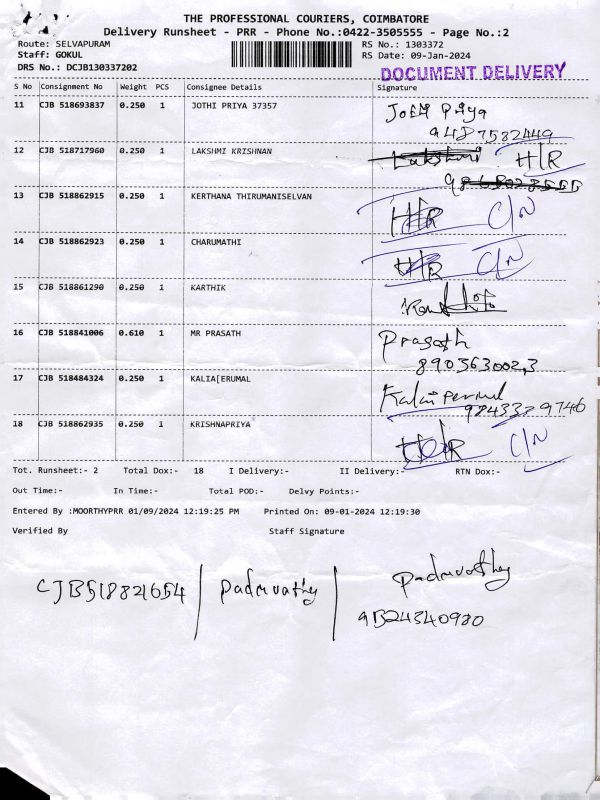 THE PROFESSIONAL COURIERS, COIMBATORE
Delivery Runsheet - PRR - Phone No.:0422-3505555 - Page No.:2
Route: SELVAPURAM RS No.: 1303372
Staff: GOKUL RS Date: 09-Jan-2024
DRS No.: DCJB130337202 DOCUMENT DELIVERY
S No Consignment No Weight PCS Consignee Details Signature
11 CJB 518693837 0.250 1 JOTHI PRIYA 37357 Jothi Priya
9487532449
12 CJB 518717960 0.250 1 LAKSHMI KRISHNAN Lakshmi H/R
13 CJB 518862915 0.250 1 KERTHANA THIRUMANISELVAN H/R C/N
14 CJB 518862923 0.250 1 CHARUMATHI H/R C/N
15 CJB 518861290 0.250 1 KARTHIK
16 CJB 518841006 0.610 1 MR PRASATH Prasath
8903630023
17 CJB 518484324 0.250 1 KALIA[ERUMAL Kalaiperumal
9843339746
18 CJB 518862935 0.250 1 KRISHNAPRIYA H/R C/N
Tot. Runsheet:- 2 Total Dox:- 18 I Delivery:- II Delivery:- RTN Dox:-
Out Time:- In Time:- Total POD:- Delvy Points:-
Entered By :MOORTHYPRR 01/09/2024 12:19:25 PM Printed On: 09-01-2024 12:19:30
Verified By Staff Signature
CJB518821654 Padmvathy Padmvathy
9524340980